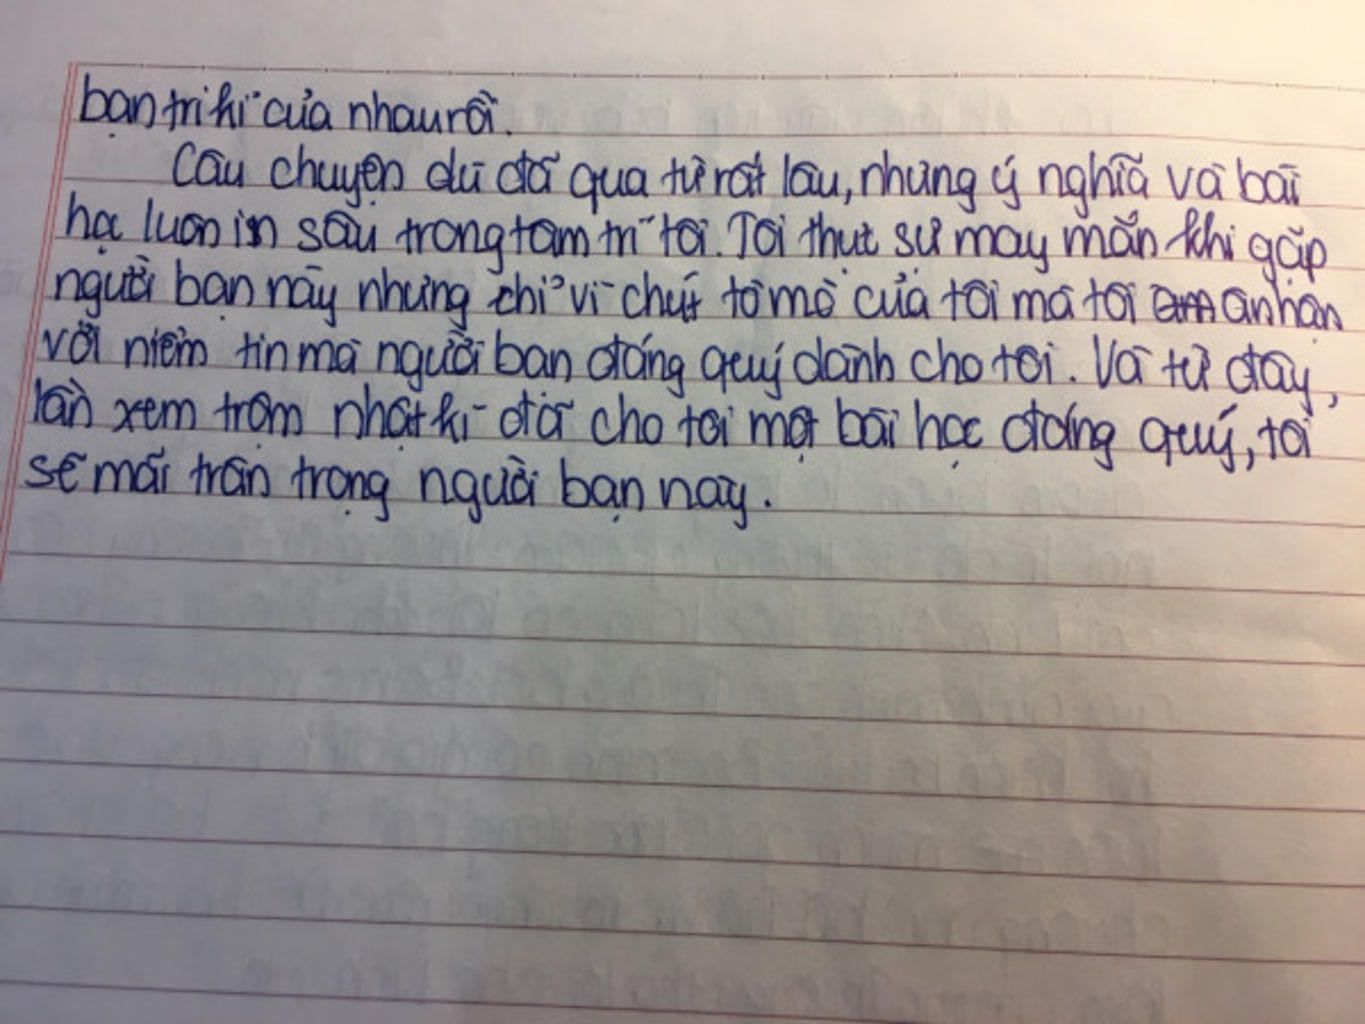 bạn tri kỉ của nhau rồi.
Câu chuyện dù đã qua từ rất lâu, nhưng ý nghĩa và bài
học luôn in sâu trong tâm trí tôi. Tôi thực sự may mắn khi gặp
người bạn này nhưng chỉ vì chút tò mò của tôi mà tôi ân hận
với niềm tin mà người bạn đáng quý dành cho tôi. Và từ đây,
lần xem trộm nhật kí đã cho tôi một bài học đáng quý, tôi
sẽ mãi trân trọng người bạn này.